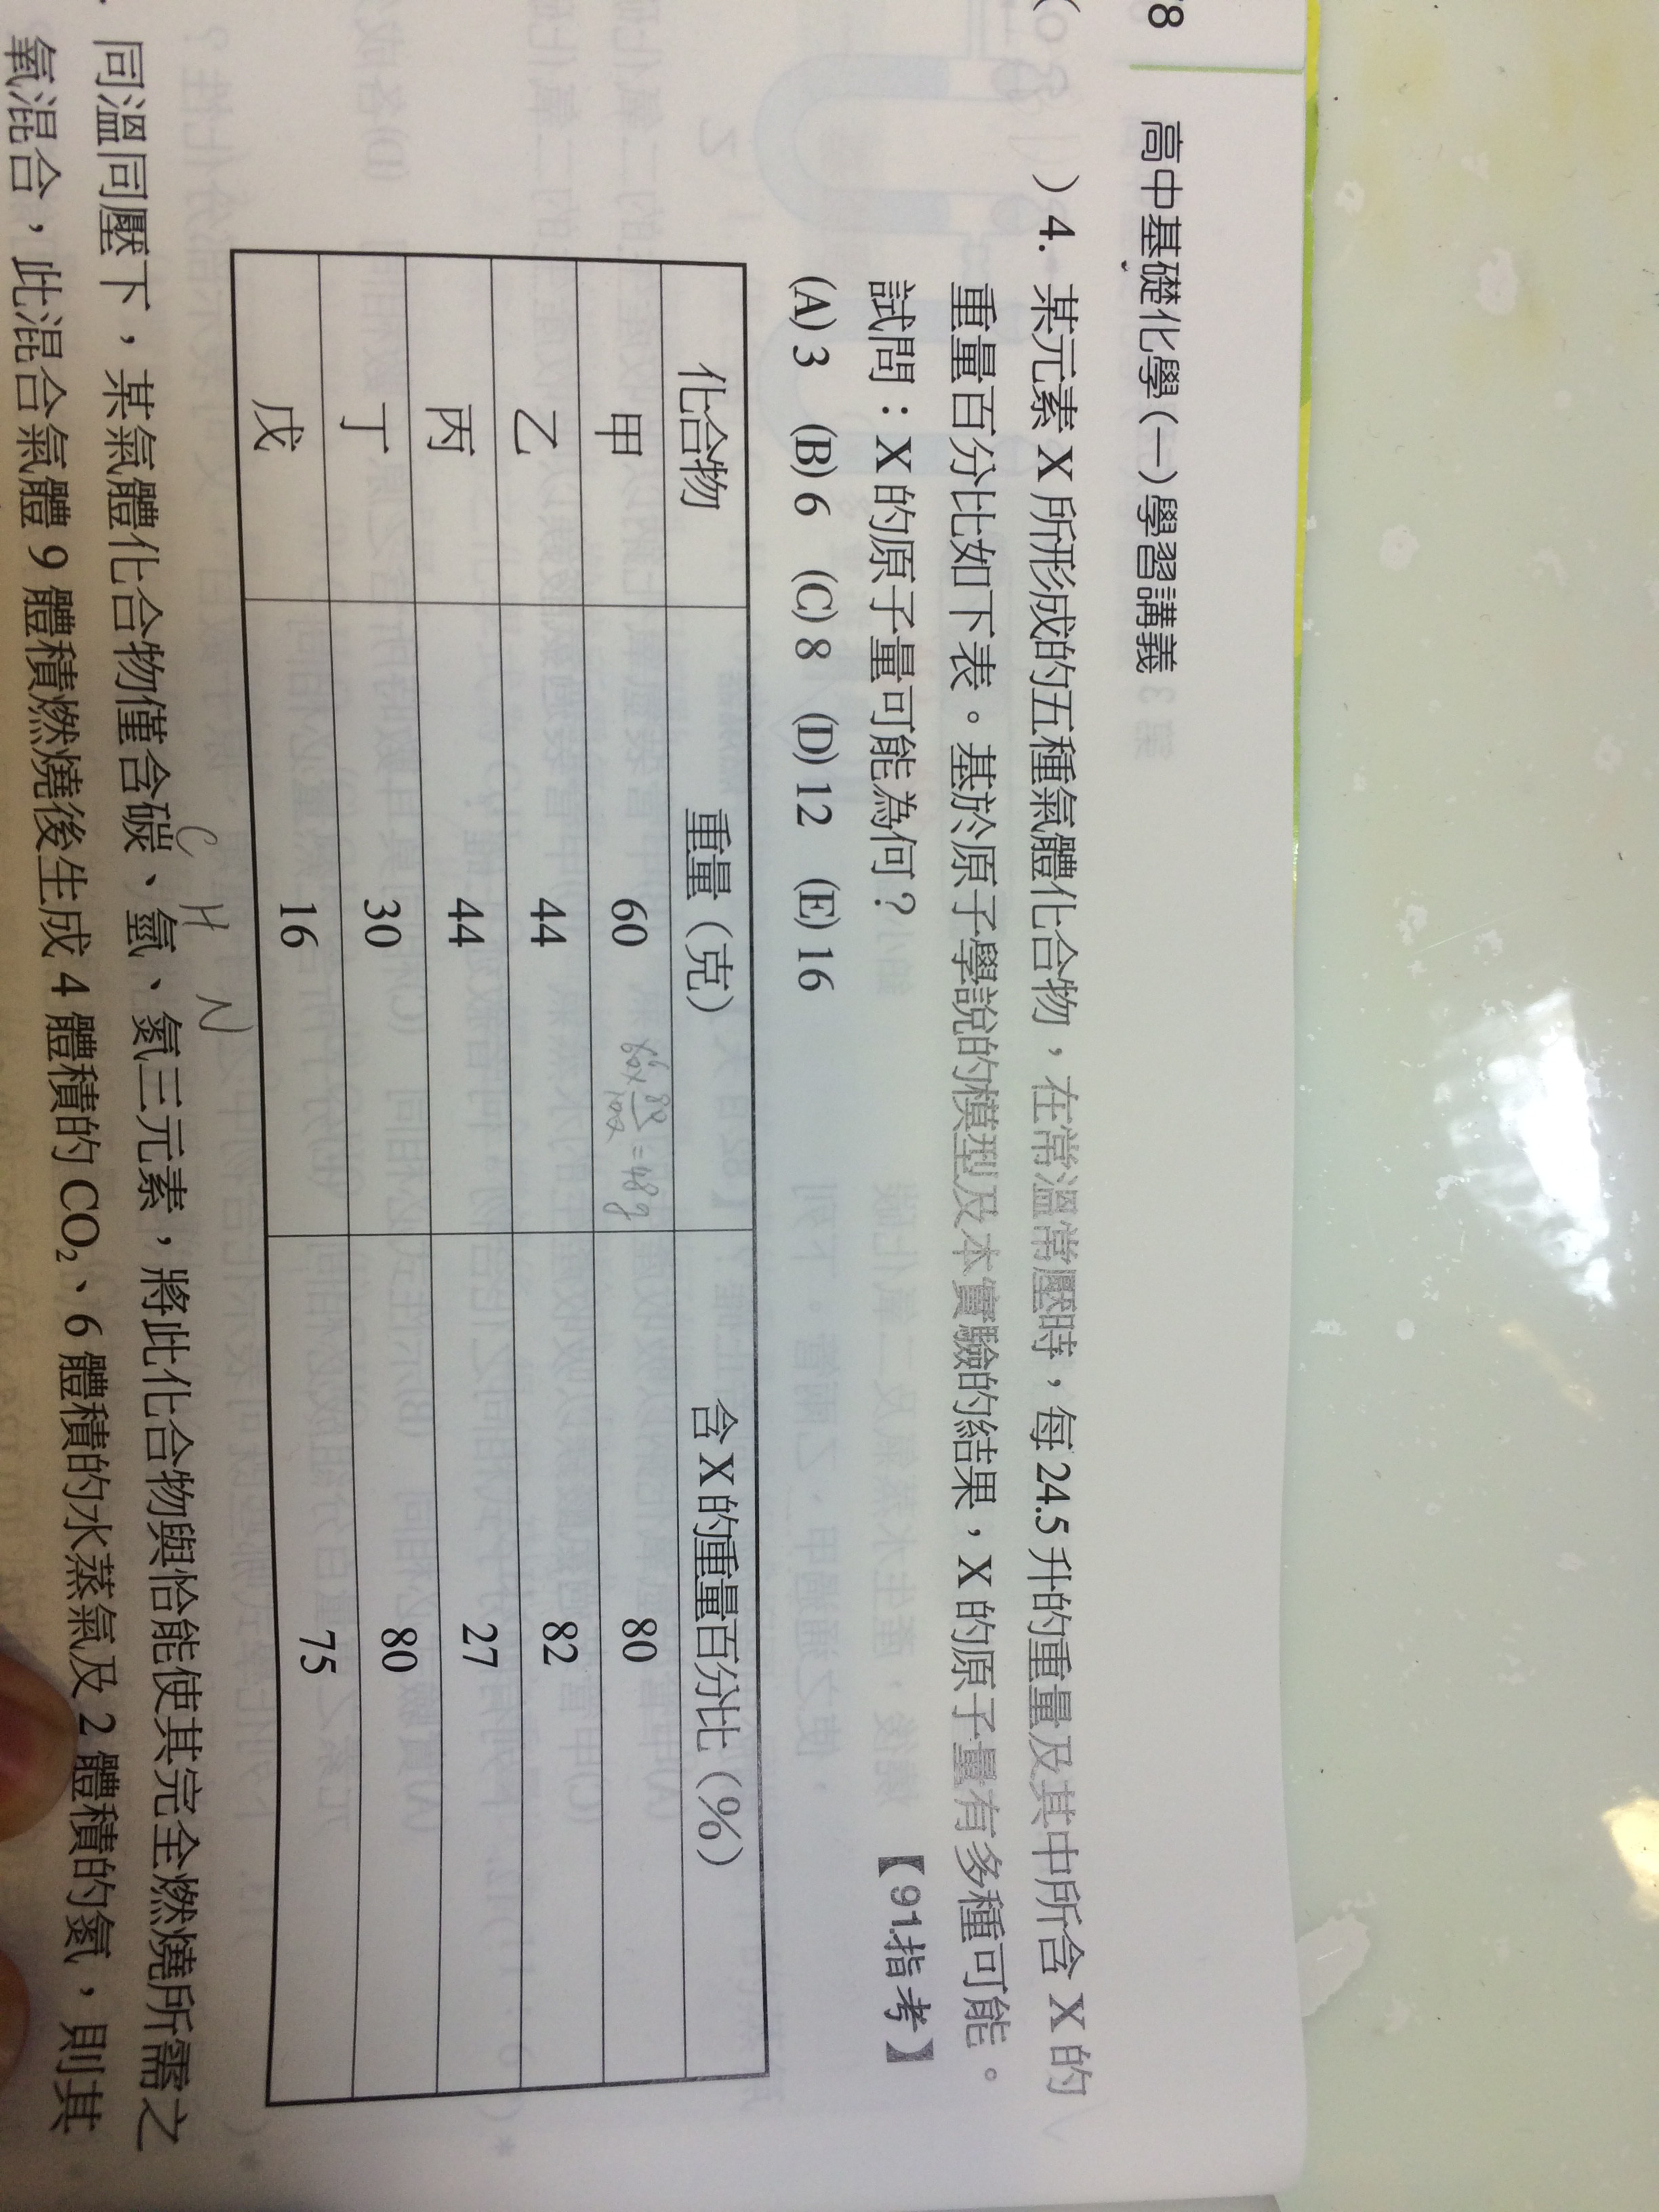 78 高中基礎化學(一)學習講義
( )4. 某元素 X 所形成的五種氣體化合物，在常溫常壓時，每 24.5 升的重量及其中所含 X 的
重量百分比如下表。基於原子學說的模型及本實驗的結果，X 的原子量有多種可能。
試問：X 的原子量可能為何？ 【91.指考】
(A) 3 (B) 6 (C) 8 (D) 12 (E) 16
化合物 重量（克） 含 X 的重量百分比（%）
甲 60 60×80/100=48g 80
乙 44 82
丙 44 27
丁 30 80
戊 16 75
C H N
同溫同壓下，某氣體化合物僅含碳、氫、氮三元素，將此化合物與恰能使其完全燃燒所需之
氧混合，此混合氣體 9 體積燃燒後生成 4 體積的 CO₂、6 體積的水蒸氣及 2 體積的氮，則其